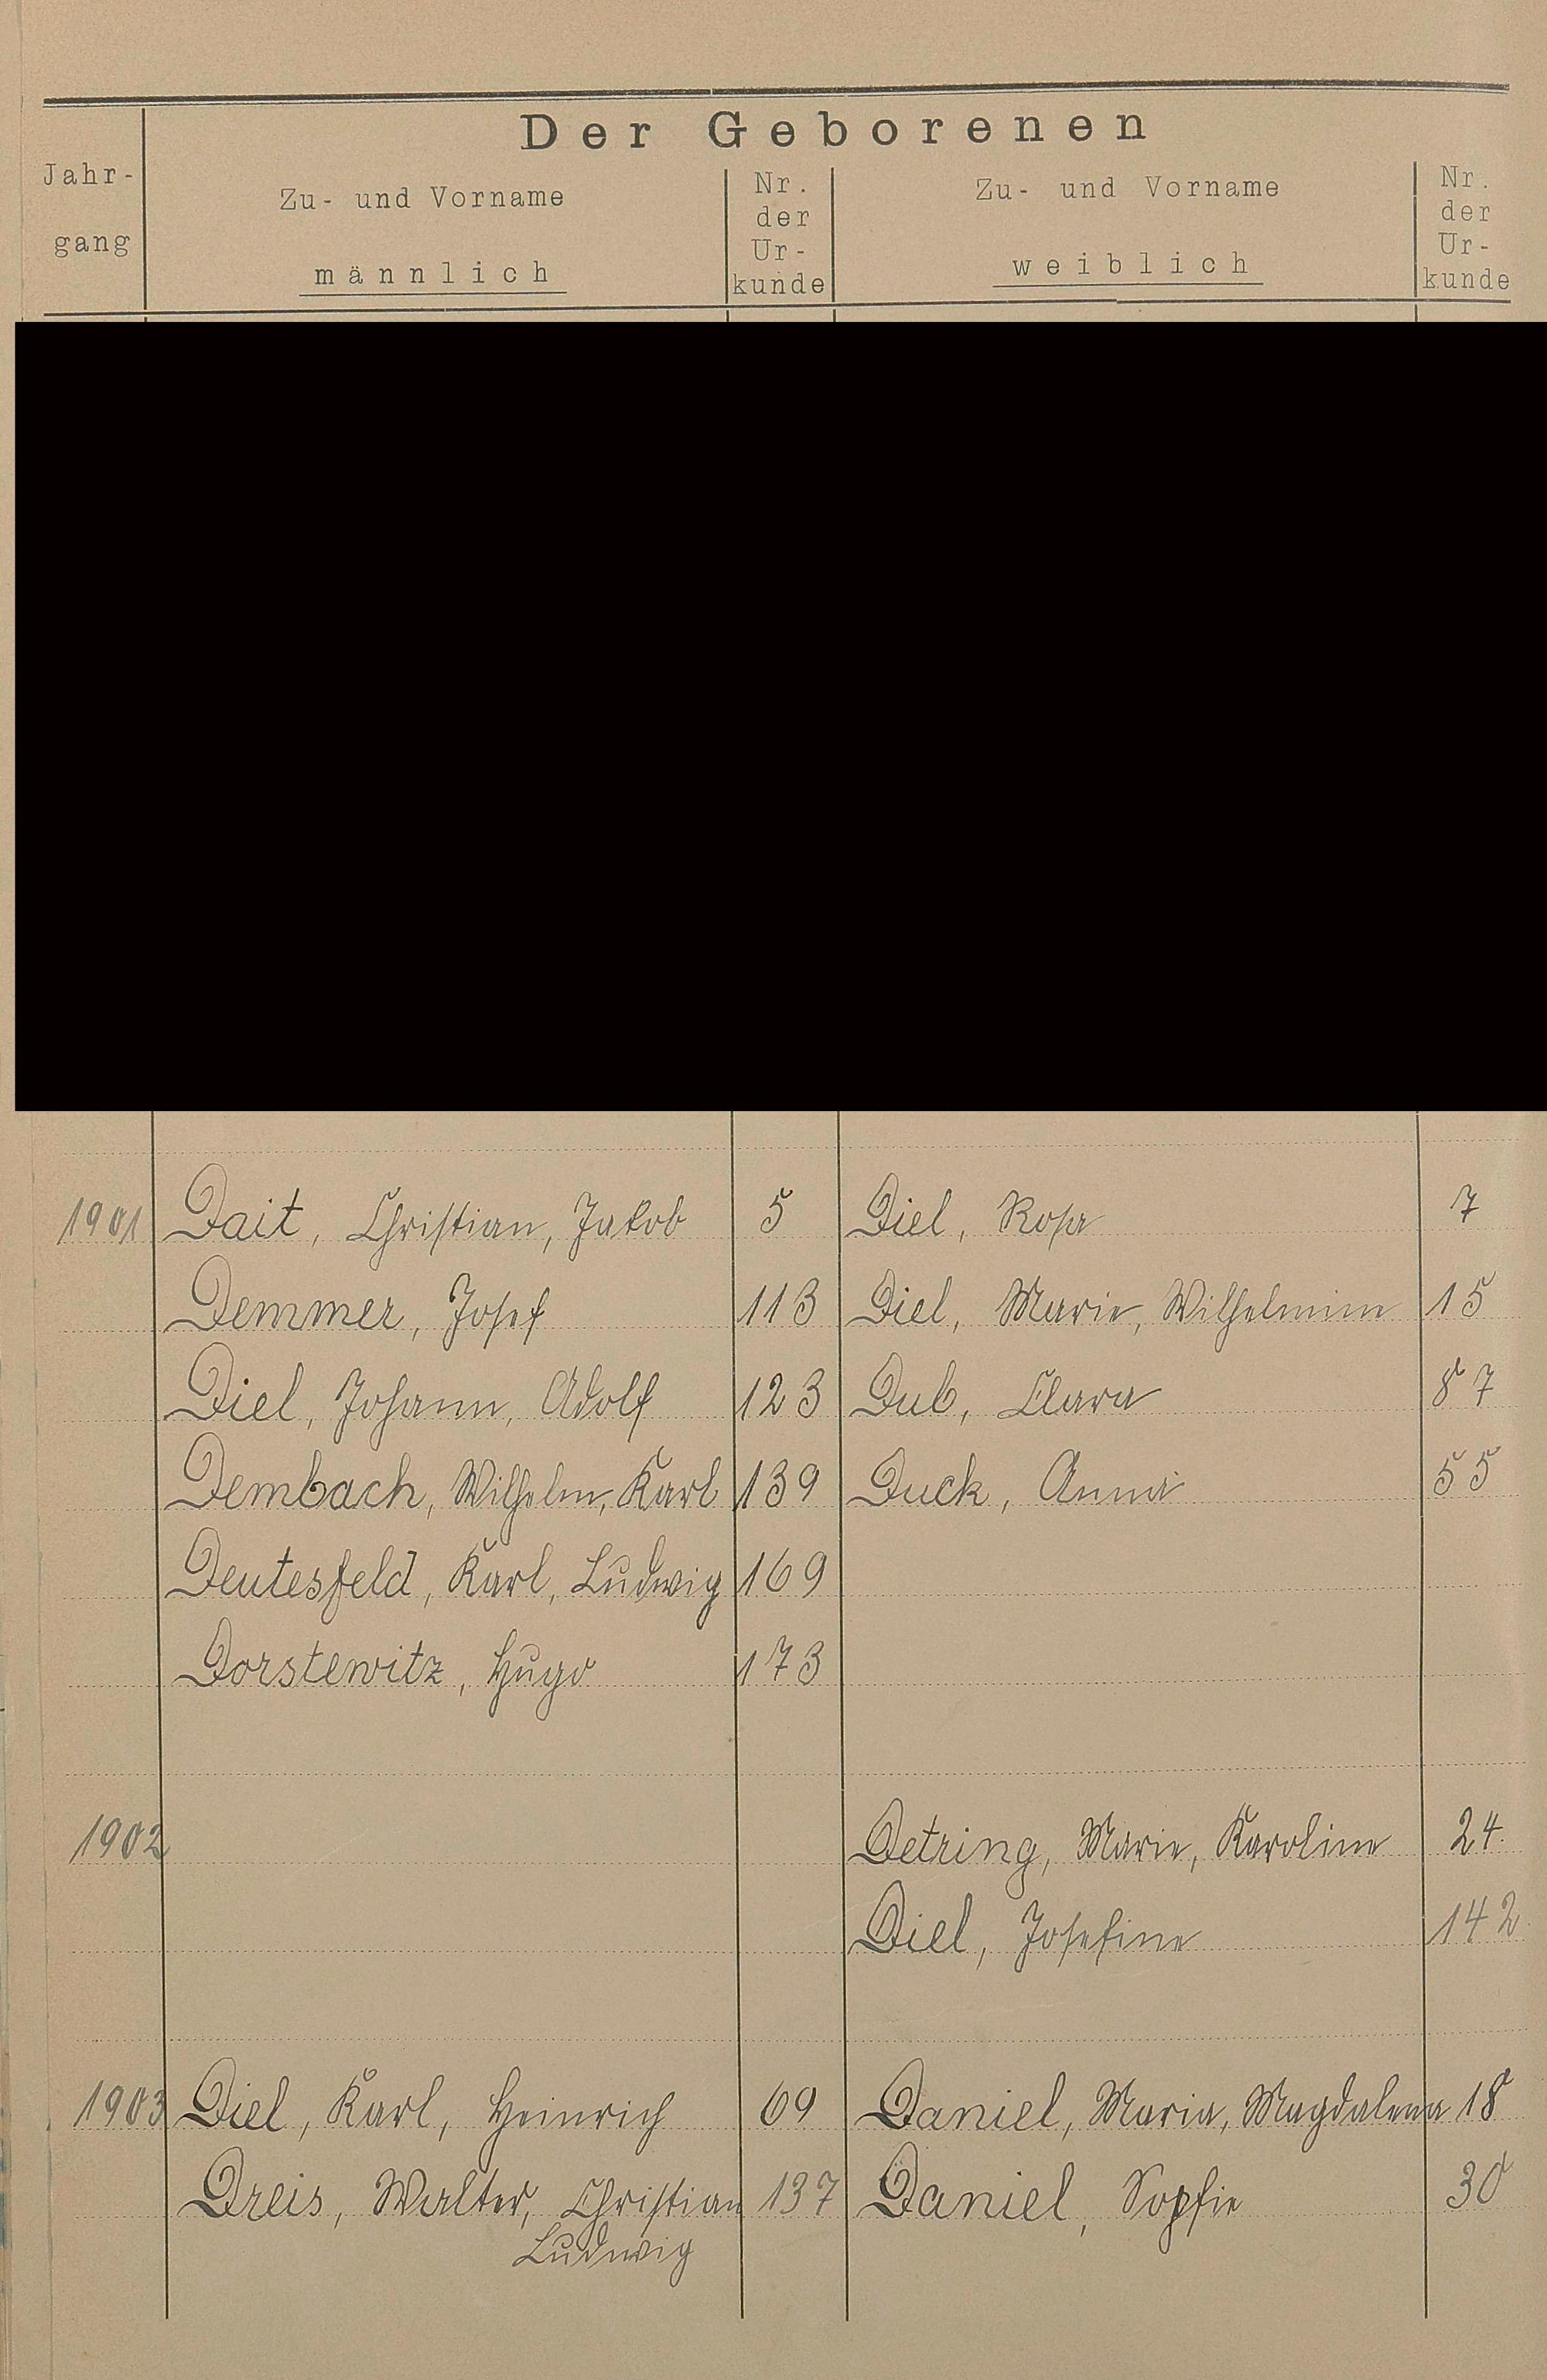 Der Geborenen
Jahr-
gang
Zu- und Vorname
männlich
Nr.
der
Ur-
kunde
Zu- und Vorname
weiblich
Nr.
der
Ur-
kunde
1901 Dait, Christian, Jakob 5 Diel, Rosa 7
Demmer, Josef 113 Diel, Marie, Wilhelmine 15
Diel, Johann, Adolf 123 Dub, Clara 87
Dembach, Wilhelm, Karl 139 Duck, Anna 55
Deutesfeld, Karl, Ludwig 169
Dorstewitz, Hugo 173
1902 Detring, Marie, Karoline 24.
Diel, Josefine 142
1903 Diel, Karl, Heinrich 69 Daniel, Maria, Magdalena 18
Dreis, Walter, Christian 137 Daniel, Sophie 30
Ludwig